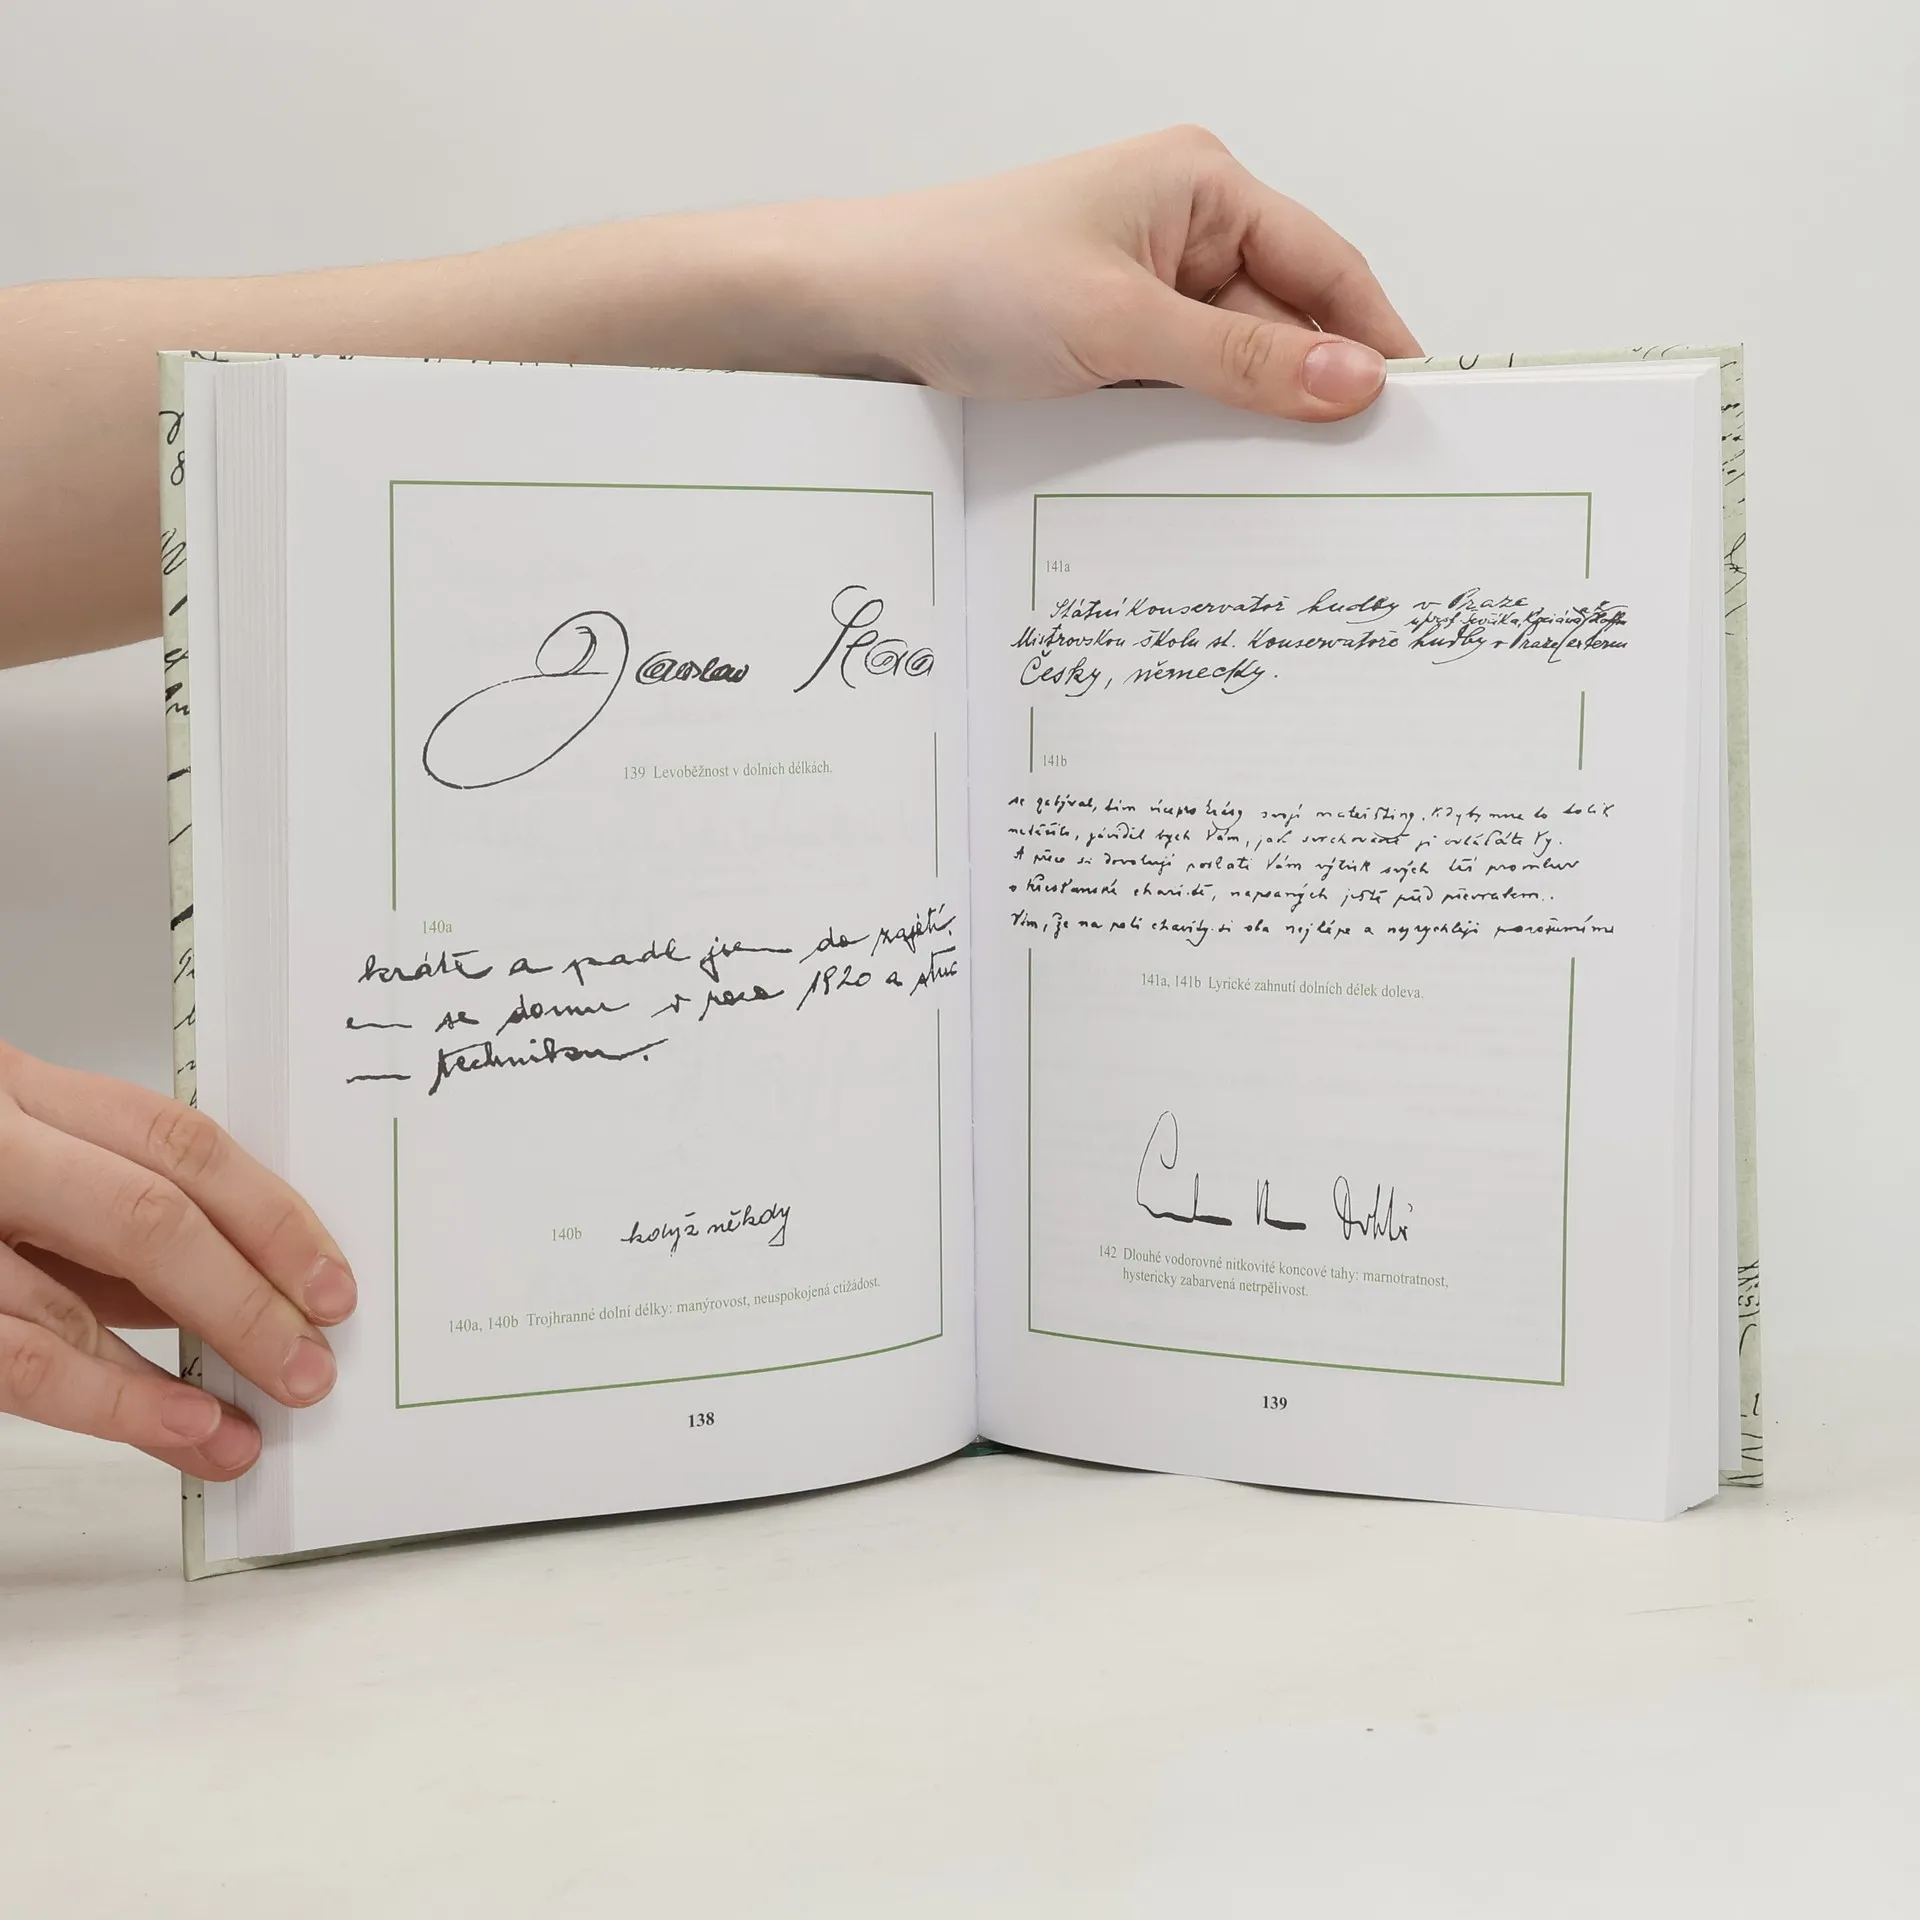 Jaroslav
139 Levoběžnost v dolních délkách.
140a
kráte a padl jsem do zajetí.
se domu v roce 1920 a
techniku.
140b
když někdy
140a, 140b Trojhranné dolní délky: manýrovost, neuspokojená ctižádost.
138
141a
Státní Konservatoř hudby v Praze
Mistrovskou školu st. Konservatoře hudby v Praze
Česky, německy.
141b
se zabýval, tím více pro krásy svojí mateřštiny. Kdyby mne to tolik
netěšilo, záviděl bych Vám, jak svrchovaně ji ovládáte Vy.
A přece si dovoluji poslati Vám výtisk svých tří promluv
o křesťanské charitě, napsaných ještě před převratem..
Vím, že na poli charity si oba nejlépe a nejrychleji porozumíme
141a, 141b Lyrické zahnutí dolních délek doleva.
142 Dlouhé vodorovné nitkovité koncové tahy: marnotratnost,
hystericky zabarvená netrpělivost.
139